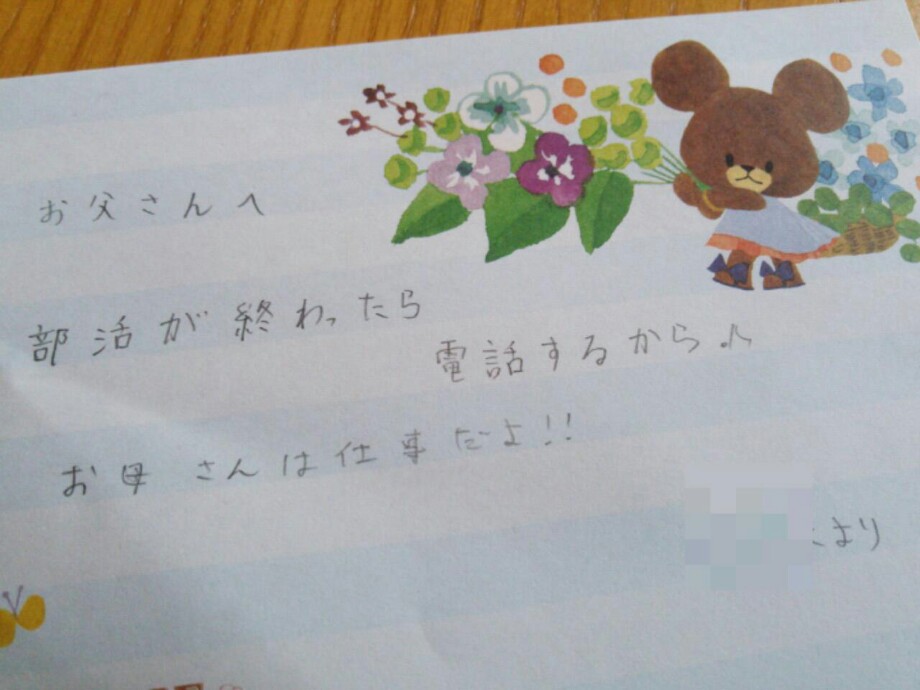 お父さんへ
部活が終わったら
電話するから♪
お母さんは仕事だよ!!
より